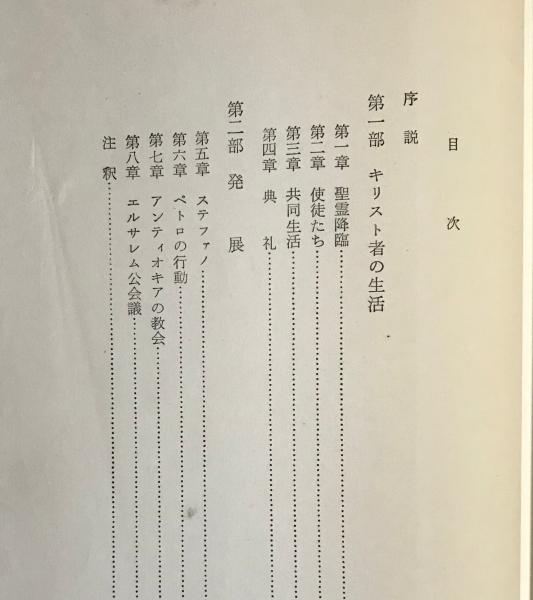 目次
序説
第一部 キリスト者の生活
第一章 聖霊降臨
第二章 使徒たち
第三章 共同生活
第四章 典礼
第二部 発展
第五章 ステファノ
第六章 ペトロの行動
第七章 アンティオキアの教会
第八章 エルサレム公会議
注釈